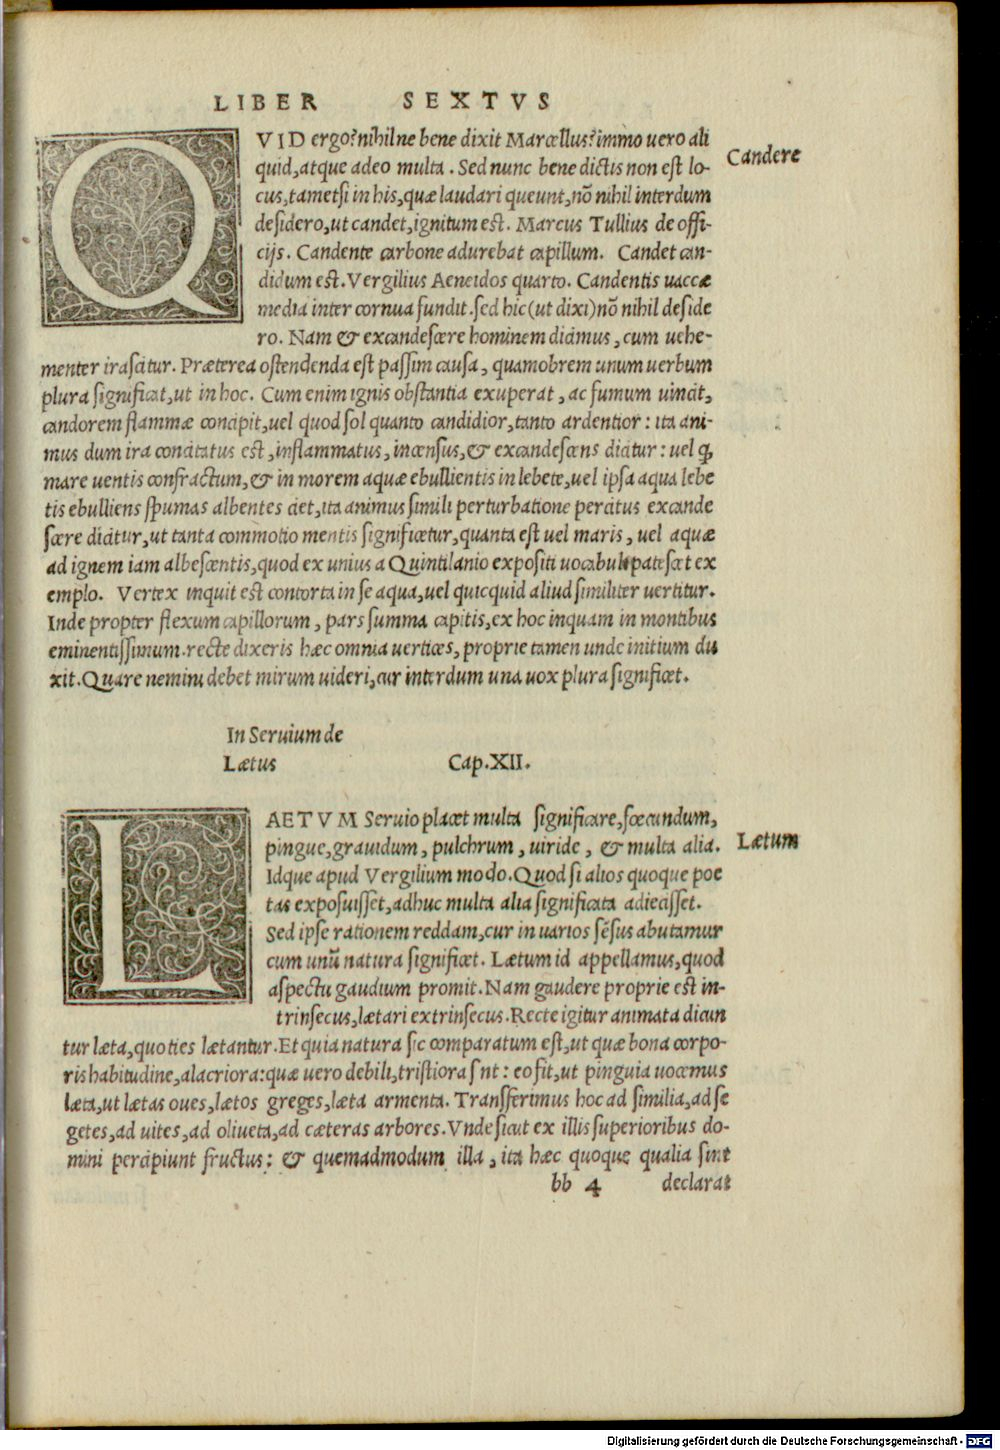 LIBER SEXTVS
QVID ergo? nihilne bene dixit Marcellus? immo uero ali
Candere
quid, atque adeo multa. Sed nunc bene dictis non est lo-
cus, tametsi in his, quæ laudari queunt, nō nihil interdum
desidero, ut candet, ignitum est. Marcus Tullius de offi-
cijs. Candente carbone adurebat capillum. Candet can-
didum est. Vergilius Aeneidos quarto. Candentis uaccæ
media inter cornua fundit. sed hic (ut dixi) nō nihil deside
ro. Nam & excandescere hominem dicimus, cum uehe-
menter irascitur. Præterea ostendenda est passim causa, quamobrem unum uerbum
plura significat, ut in hoc. Cum enim ignis obstantia exuperat, ac fumum uincit,
candorem flammæ concipit, uel quod sol quanto candidior, tanto ardentior: ita ani-
mus dum ira concitatus est, inflammatus, incensus, & excandescens dicitur: uel ꝙ
mare uentis confractum, & in morem aquæ ebullientis in lebete, uel ipsa aqua lebe
tis ebulliens spumas albentes ciet, ita animus simili perturbatione percitus excande
scere dicitur, ut tanta commotio mentis significetur, quanta est uel maris, uel aquæ
ad ignem iam albescentis, quod ex unius a Quintilanio expositi uocabuli patescet ex
emplo. Vertex inquit est contorta in se aqua, uel quicquid aliud similiter uertitur.
Inde propter flexum capillorum, pars summa capitis, ex hoc inquam in montibus
eminentissimum. recte dixeris hæc omnia uertices, proprie tamen unde initium du
xit. Quare nemini debet mirum uideri, cur interdum una uox plura significet.
In Seruium de
Lætus Cap. XII.
LAETVM Seruio placet multa significare, fœcundum,
Lætum
pingue, grauidum, pulchrum, uiride, & multa alia.
Idque apud Vergilium modo. Quod si alios quoque poe
tas exposuisset, adhuc multa alia significata adiecisset.
Sed ipse rationem reddam, cur in uarios sēsus abutamur
cum unū natura significet. Lætum id appellamus, quod
aspectu gaudium promit. Nam gaudere proprie est in-
trinsecus, lætari extrinsecus. Recte igitur animata dicun
tur læta, quoties lætantur. Et quia natura sic comparatum est, ut quæ bona corpo-
ris habitudine, alacriora: quæ uero debili, tristiora snt: eo fit, ut pinguia uocemus
læta, ut lætas oues, lætos greges, læta armenta. Transferimus hoc ad similia, ad se
getes, ad uites, ad oliueta, ad cæteras arbores. Vnde sicut ex illis superioribus do-
mini percipiunt fructus: & quemadmodum illa, ita hæc quoque qualia sint
bb 4 declarat
Digitalisierung gefördert durch die Deutsche Forschungsgemeinschaft - DFG